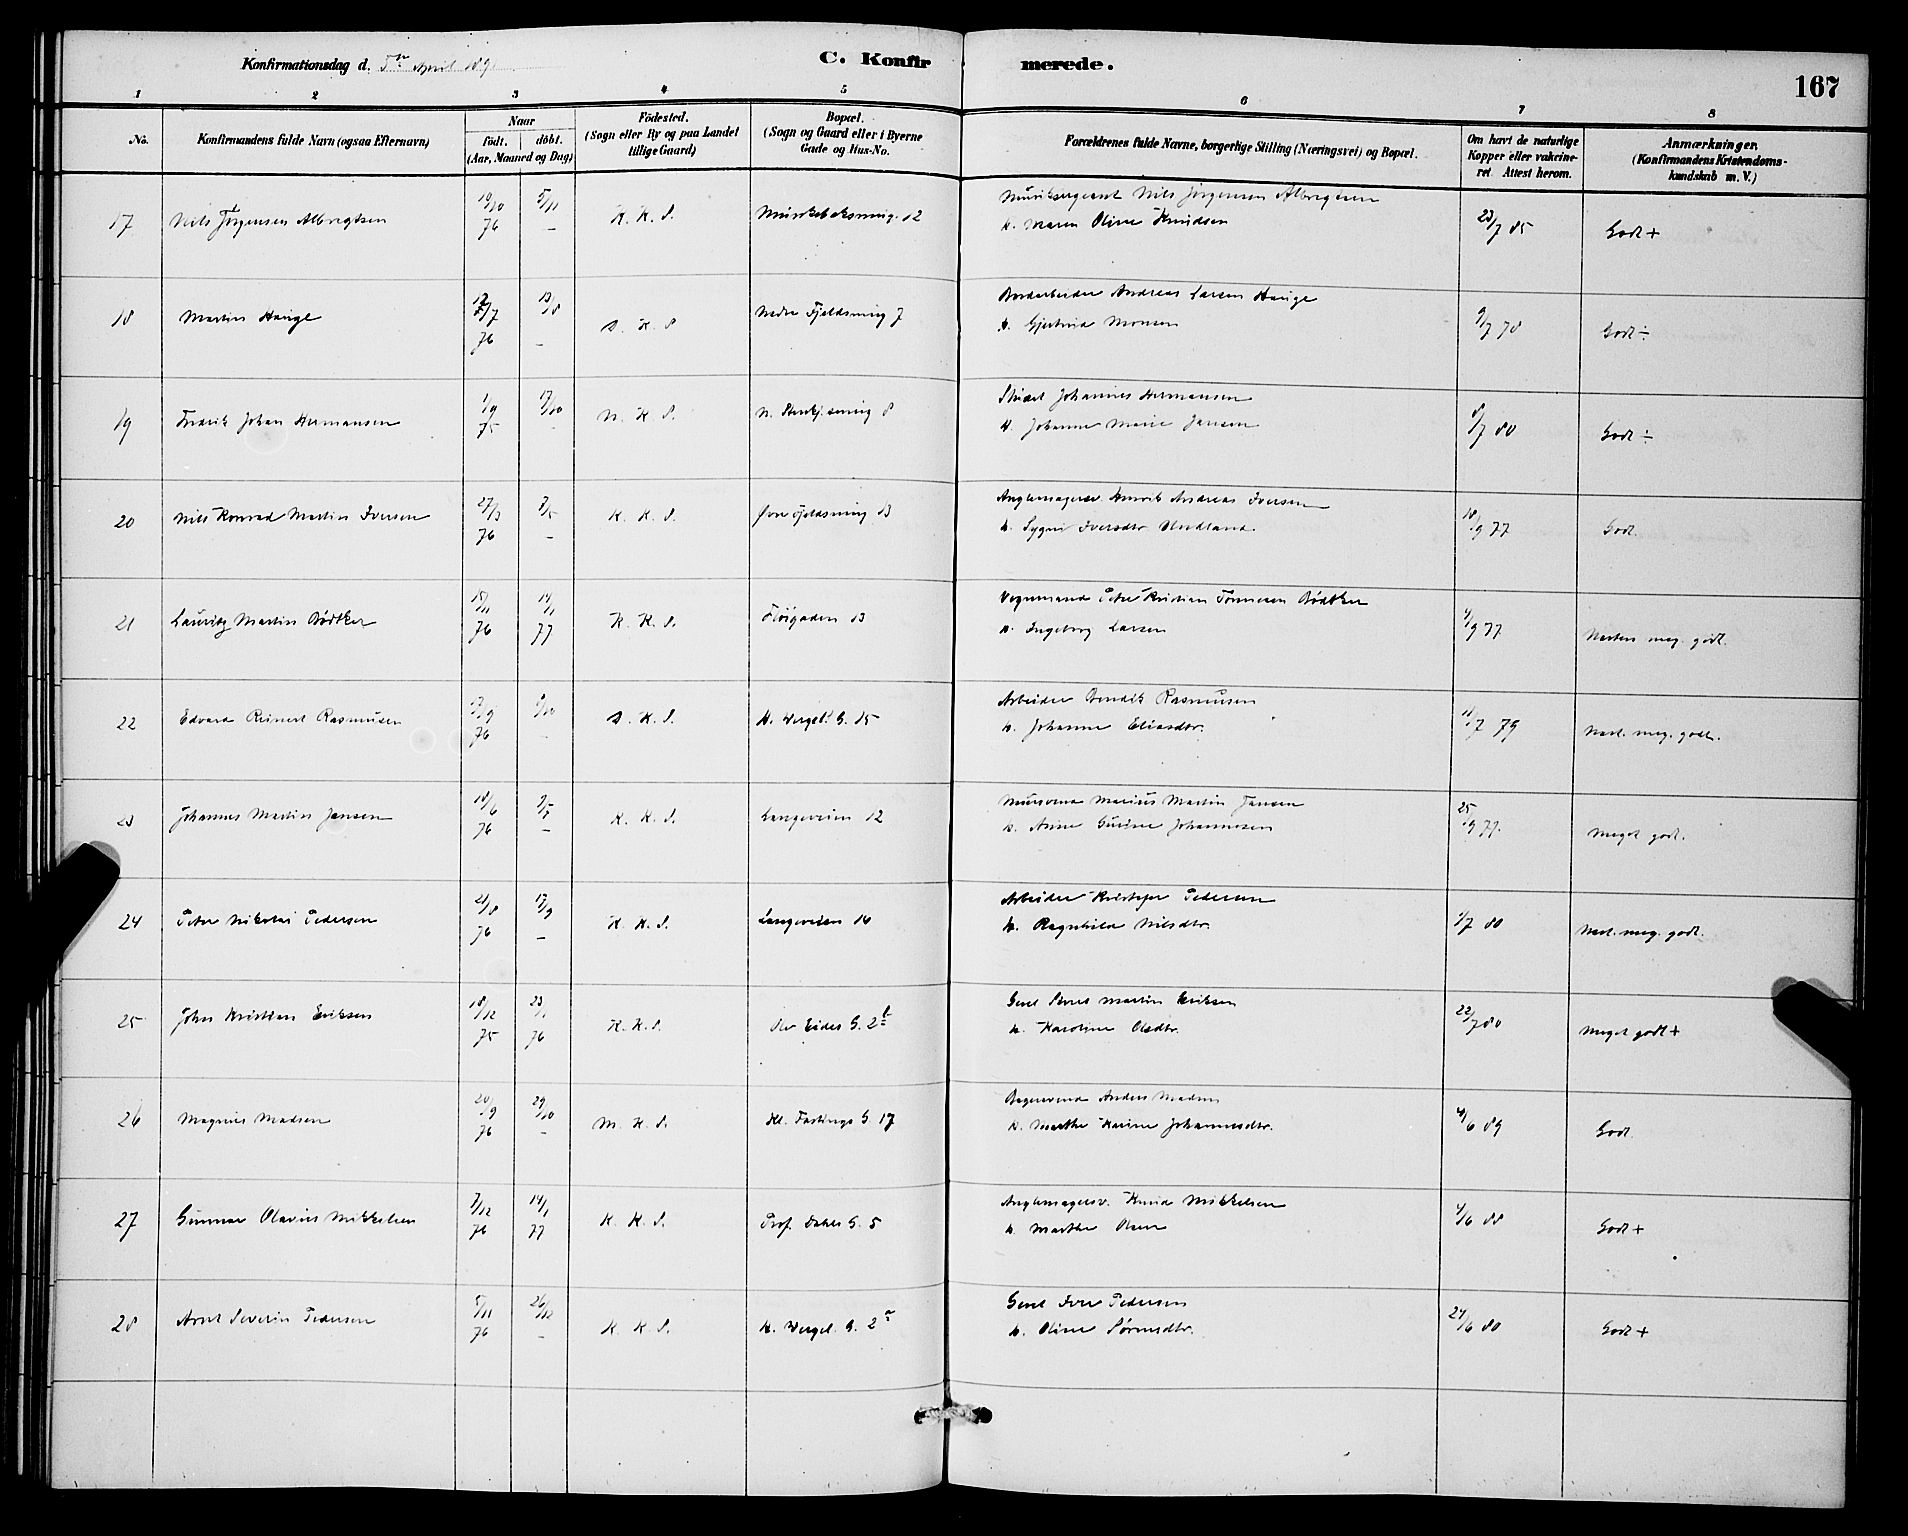 Konfirmationsdag d. 5te April 1891
C. Konfirmerede.
167
1 2 3 4 5 6 7 8
No.
Konfirmandens fulde Navn (ogsaa Efternavn)
Naar
födt. döbt.
(Aar, Maaned og Dag)
Födested.
(Sogn eller By og paa Landet
tillige Gaard)
Bopæl.
(Sogn og Gaard eller i Byerne
Gade og Hus-No.
Forældrenes fulde Navne, borgerlige Stilling (Næringsvei) og Bopæl.
Om havt de naturlige
Kopper eller vakcine-
ret Attest herom.
Anmærkninger.
(Konfirmandens Kristendoms-
kundskab m. V.)
17 Nils Jörgensen Albregtsen 19/10 76 5/11 – K. K. S. 12 Musiksergeant Nils Jörgensen Albregtsen
h. Maren Oline Knudsen 23/7 85 Godt +
18 Martin Hauge /7 76 13/8 – D. K. S Nedre Fjeldsmug 7 Bordarbeider Andreas Larsen Hauge
h. Gjertrud Monsen 9/7 78 Godt ÷
19 Fredrik Johan Hermansen 1/9 75 17/10 – N. K. S. N. Stenkj.smug 8 Johannes Hermansen
h. Johanne Marie Jansen 8/7 80 Godt ÷
20 Nils Konrad Martin Iversen 27/3 76 7/5 – K. K. S. Øvre Fjeldsmug 13 Henrik Andreas Iversen
h. Sygni Iversdtr 18/9 77 Godt.
21 Lauritz Martin Bödtker 15/11 76 14/1 77 K. K. S. Flöigaden 13 Vognmand Peter Kristian Tönnesen Bödtker
h. Ingeborg Larsen 4/9 77 Næsten meg. godt.
22 Edvard Reinert Rasmussen 17/9 76 /10 – D. K. S. H. Wergel. G. 15 Arbeider Bendik Rasmussen
h. Johanne Eliasdtr. 11/7 79 Næst. meg. godt.
23 Johannes Martin Jansen 18/6 76 – K. K. S. Langeveien 12 Marius Martin Jansen
h. Anne Gurine Johannesen 25/9 77. Meget godt.
24 Peter Nikolai Pedersen 21/8 76 17/9 – K. K. S. Langeveien 16 Arbeider Kristofer Pedersen
h. Ragnhild Nilsdtr. 1/7 80 Næst. meg. godt.
25 John Kristian Eriksen 18/12 75 23/1 76 K. K. S. G. 2b Martin Eriksen
h. Karoline Olsdtr. 22/7 80 Meget godt +
26 Magnus Madsen 20/9 76 29/10 – M. K. S. G. 17 Anders Madsen
h. Marthe Karine Johannesdtr. 4/6 89 Godt.
27 Gunnar Olavius Mikkelsen 7/12 76 14/1 77 K. K. S. Prof. Dahls G. 5 Knud Mikkelsen
h. Marthe Olsen 4/6 88 Godt +
28 Arnt Severin Pedersen 5/11 76 26/12 – K. K. S. H. Wergel. G. 2a Iver Pedersen
h. Oline Sörensdtr. 24/6 80 Godt +